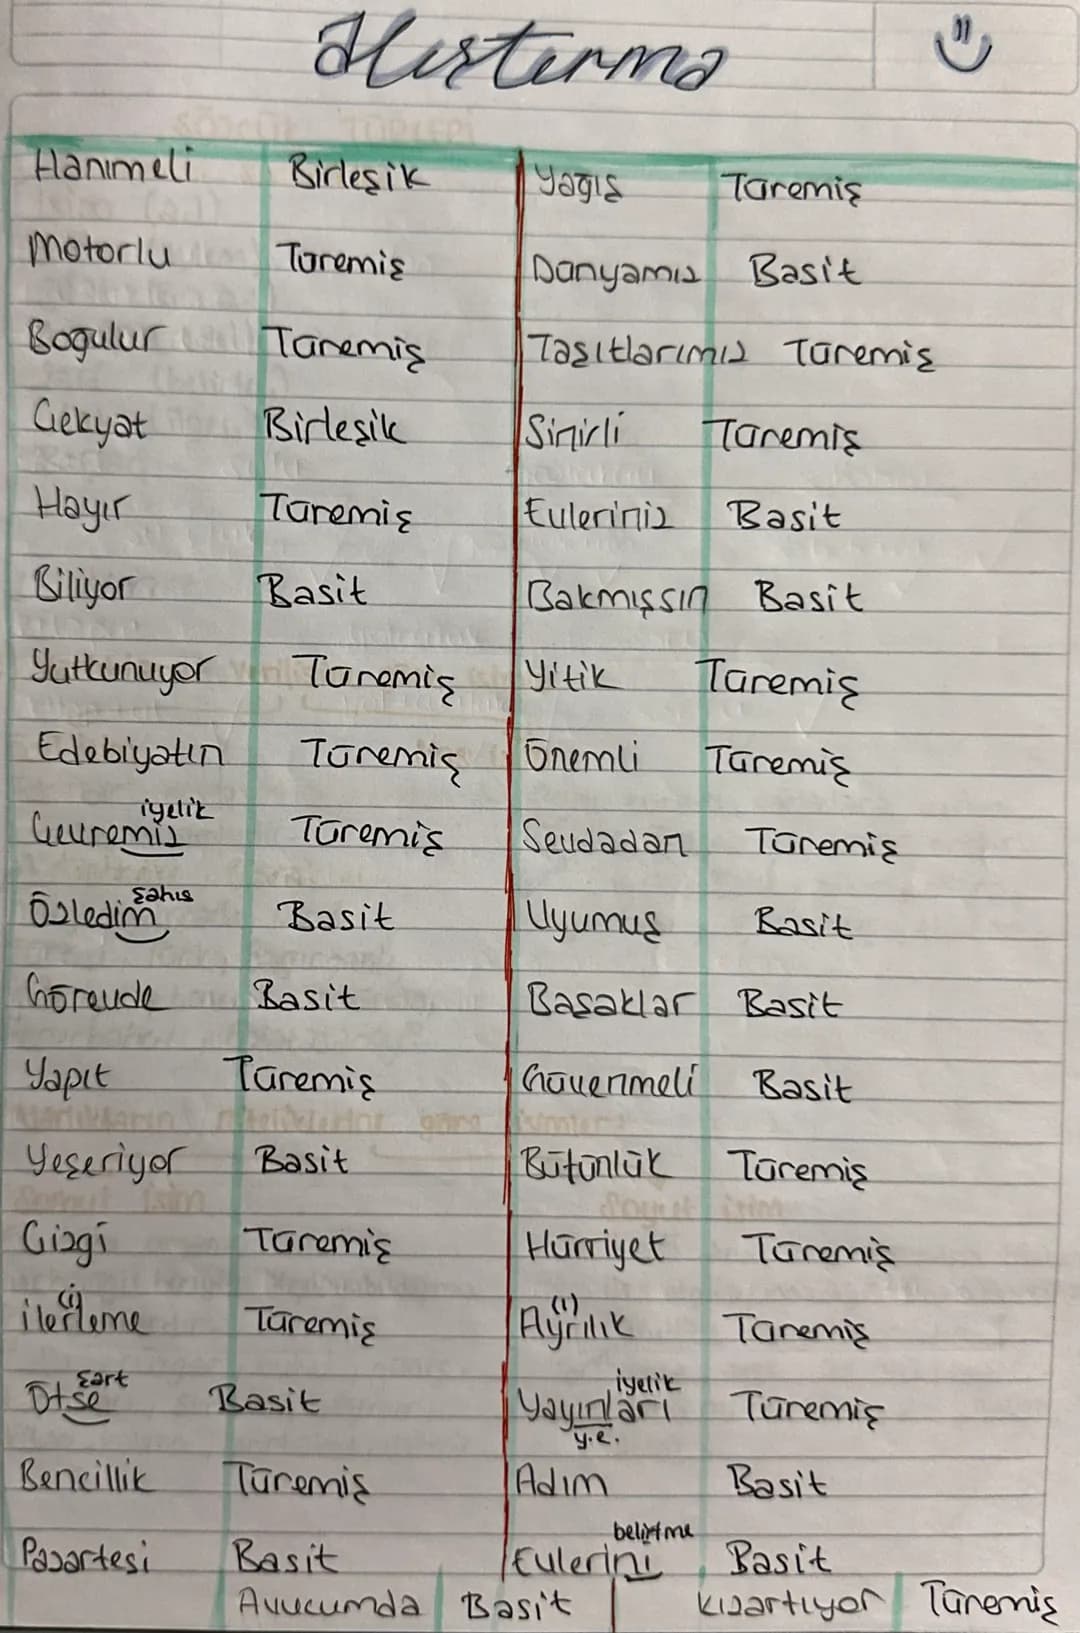 Alıştırma
Hanımeli Birleşik Yağış Türemiş
Motorlu Türemiş Dünyamız Basit
Boğulur Türemiş Taşıtlarımız Türemiş
Çekyat Birleşik Sinirli Türemiş
Hayır Türemiş Evleriniz Basit
Biliyor Basit Bakmışsın Basit
Yutkunuyor Türemiş Yitik Türemiş
Edebiyatın Türemiş Önemli Türemiş
iyelik
Çevremiz Türemiş Sevdadan Türemiş
şahıs
Özledim Basit Uyumuş Basit
Görevde Basit Başaklar Basit
Yapıt Türemiş Güvenmeli Basit
Yeşeriyor Basit Bütünlük Türemiş
Çizgi Türemiş Hürriyet Türemiş
(i) (ı)
ilerleme Türemiş Ayrılık Türemiş
şart iyelik
Ötse Basit Yayınları Türemiş
y.e.
Bencillik Türemiş Adım Basit
belirtme
Pazartesi Basit Evlerini Basit
Avucumda Basit kızartıyor Türemiş